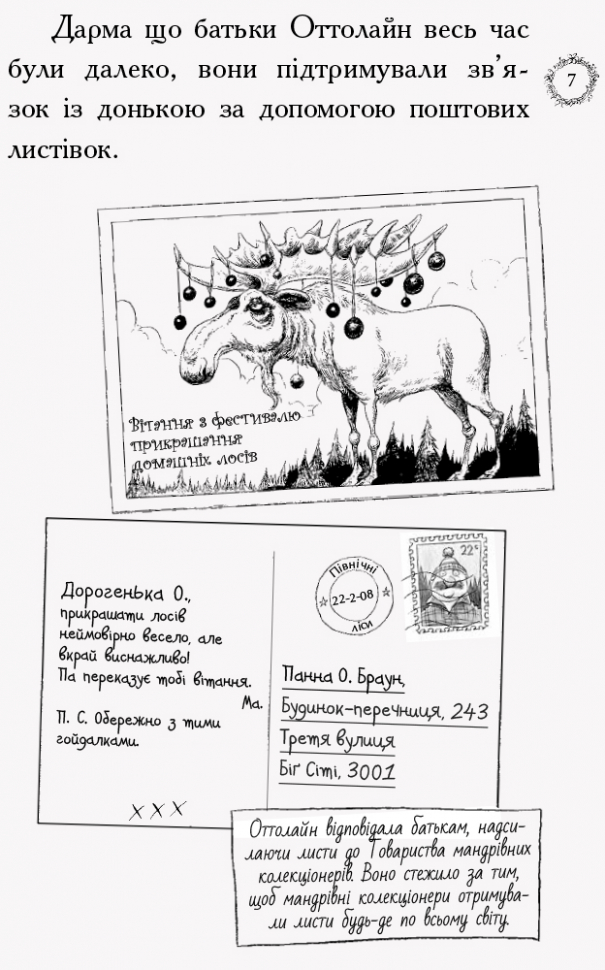 Дарма що батьки Оттолайн весь час
були далеко, вони підтримували зв’я-
зок із донькою за допомогою поштових
листівок.
7
Вітання з фестивалю
прикрашання
домашніх лосів
Дорогенька О.,
прикрашати лосів
неймовірно весело, але
вкрай виснажливо!
Па переказує тобі вітання.
Ма.
П. С. Обережно з тими
гойдалками.
X X X
Північні
22-2-08
ліси
22с
Панна О. Браун,
Будинок-перечниця, 243
Третя вулиця
Біг Сіті, 3001
Оттолайн відповідала батькам, надси-
лаючи листи до Товариства мандрівних
колекціонерів. Воно стежило за тим,
щоб мандрівні колекціонери отримува-
ли листи будь-де по всьому світу.